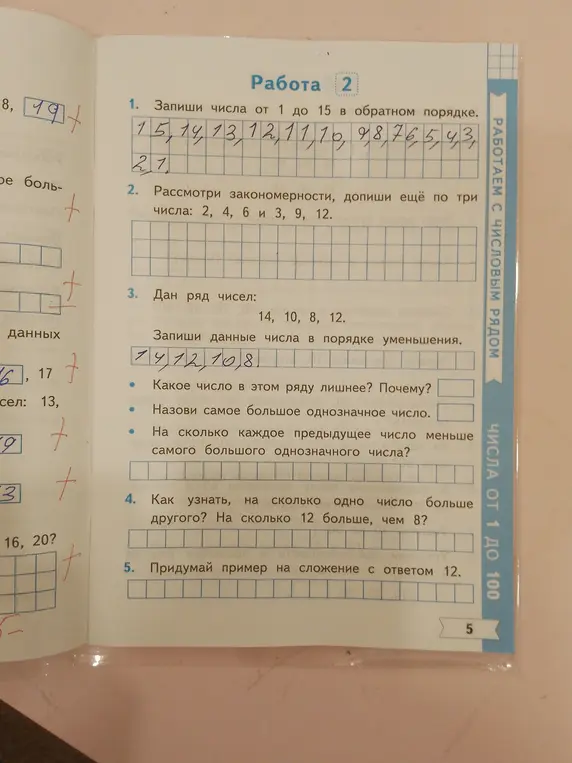 8, 19
ое боль-
данных
16, 17
сел: 13,
19
3
16, 20?
Работа 2
1. Запиши числа от 1 до 15 в обратном порядке.
15, 14, 13, 12, 11, 10, 9, 8, 7 6, 5, 4, 3,
2, 1.
2. Рассмотри закономерности, допиши ещё по три
числа: 2, 4, 6 и 3, 9, 12.
3. Дан ряд чисел:
14, 10, 8, 12.
Запиши данные числа в порядке уменьшения.
14, 12, 10, 8.
• Какое число в этом ряду лишнее? Почему?
• Назови самое большое однозначное число.
• На сколько каждое предыдущее число меньше
самого большого однозначного числа?
4. Как узнать, на сколько одно число больше
другого? На сколько 12 больше, чем 8?
5. Придумай пример на сложение с ответом 12.
5
РАБОТАЕМ С ЧИСЛОВЫМ РЯДОМ
ЧИСЛА ОТ 1 ДО 100